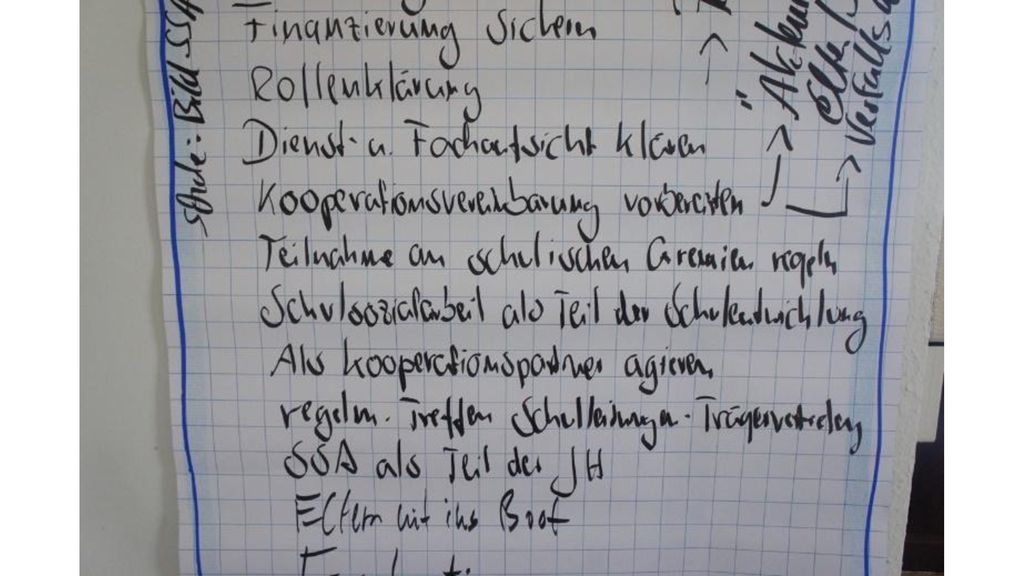 Finanzierung sichern
Rollenklärung
Dienst- u. Fachaufsicht klären
Kooperationsvereinbarung vorbereiten
Teilnahme an schulischen Gremien regeln
Schulsozialarbeit als Teil der Schulentwicklung
Als Kooperationspartner agieren
regelm. Treffen Schulleitungen - Trägervertretung
SSA als Teil der JH
Eltern mit ins Boot
Bild SSA